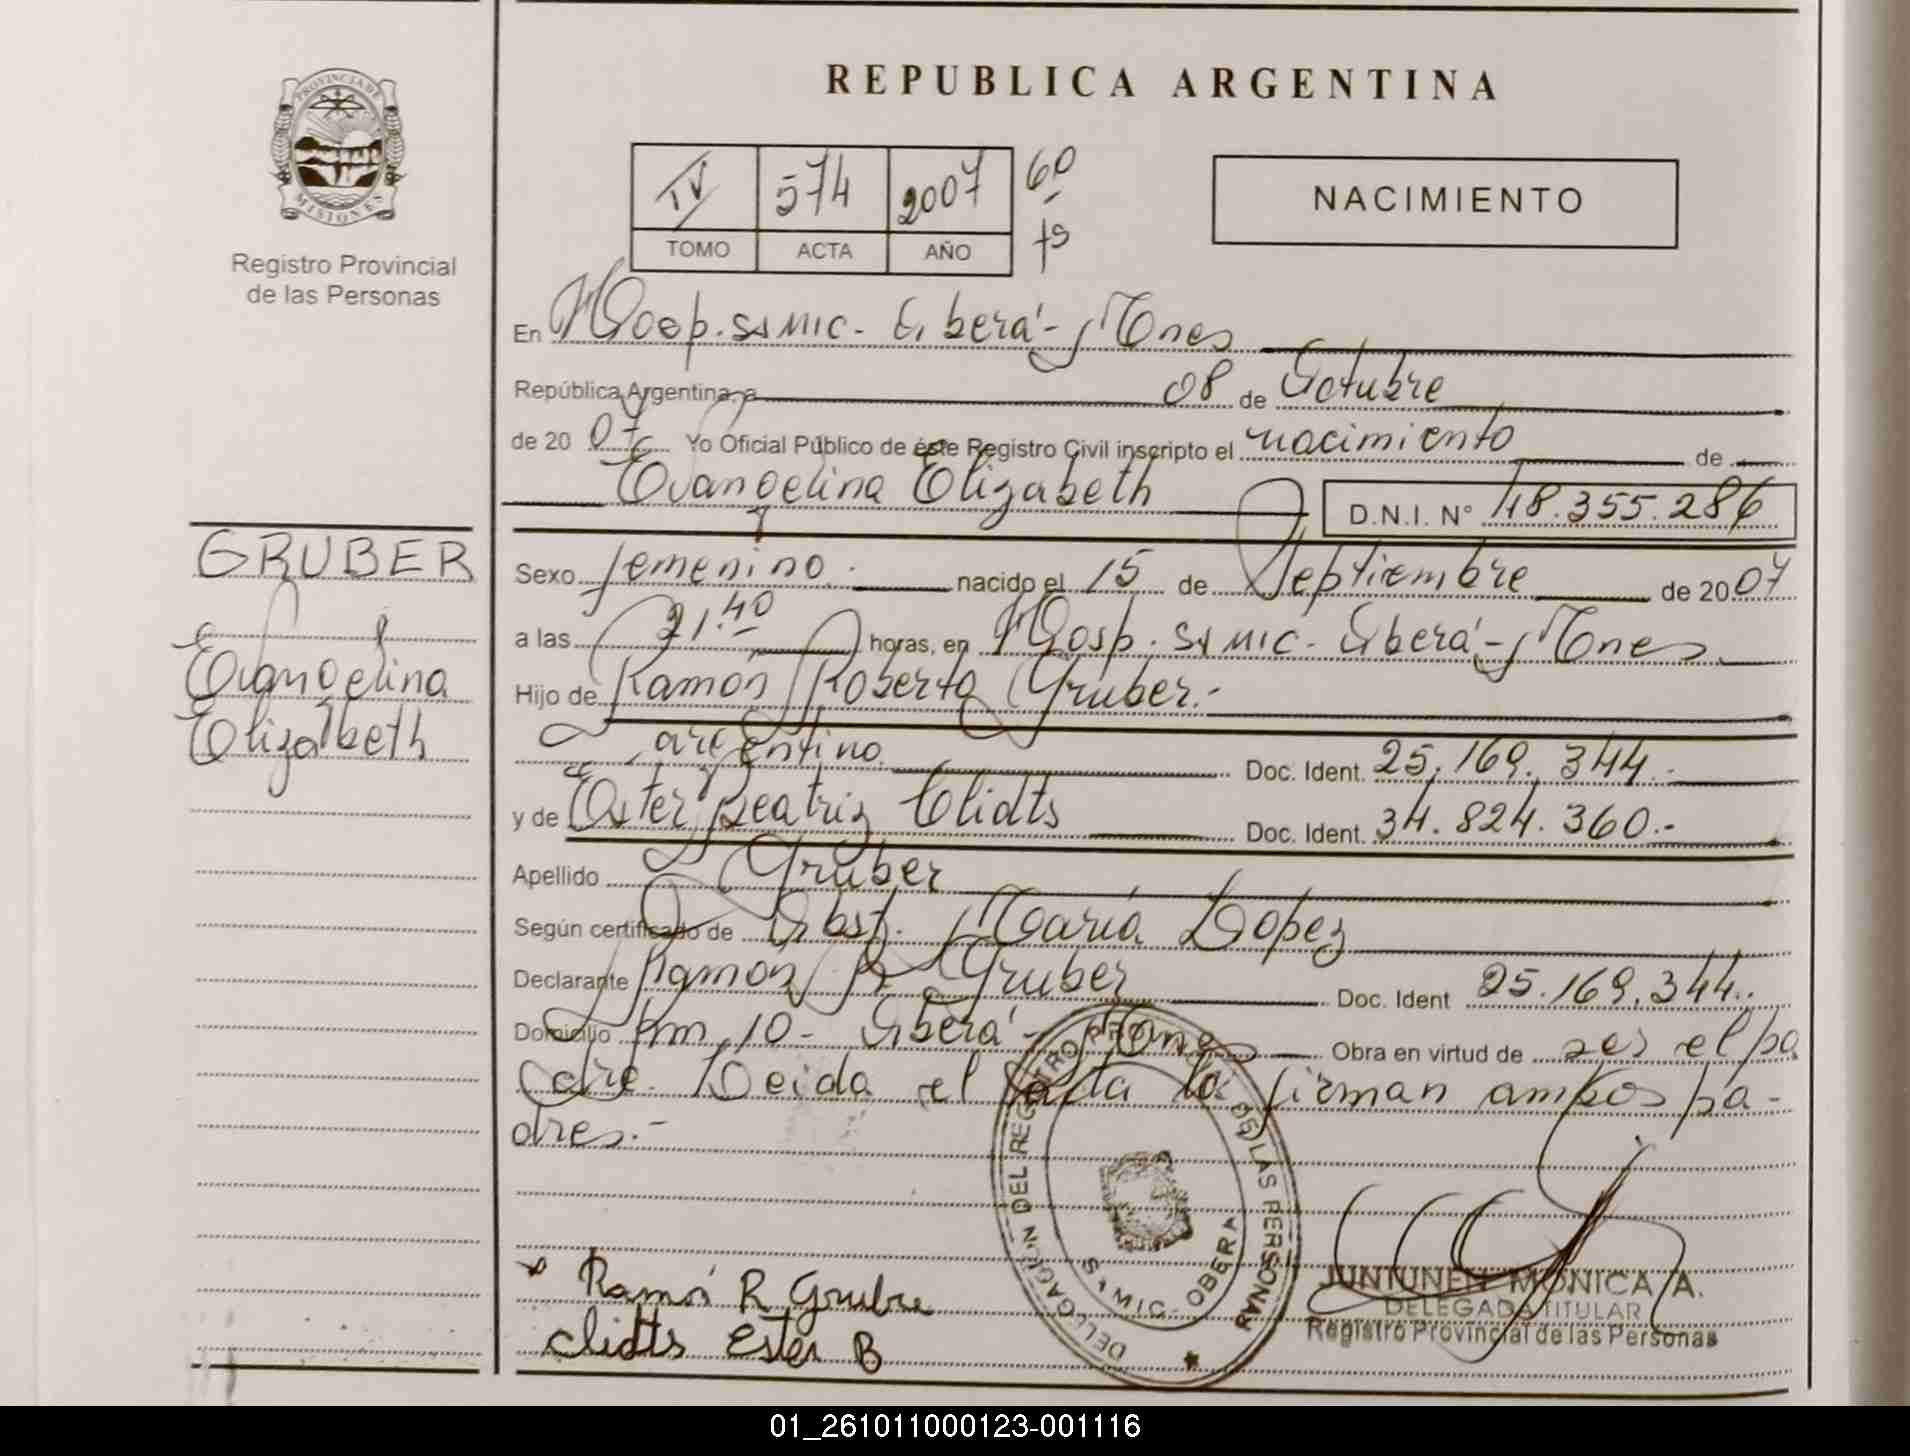 PROVINCIA DE
MISIONES
Registro Provincial
de las Personas
GRUBER
Evangelina
Elizabeth
REPUBLICA ARGENTINA
IV 574 2007 60
TOMO ACTA AÑO
NACIMIENTO
En Hosp. SAMIC - Oberá - Mnes
República Argentina, a 08 de Octubre
de 2007 Yo Oficial Público de éste Registro Civil inscripto el nacimiento de
Evangelina Elizabeth D.N.I. N° 48.355.286
Sexo femenino. nacido el 15 de Septiembre de 2007
a las 21.40 horas, en Hosp. SAMIC - Oberá - Mnes
Hijo de Ramón Roberto Gruber.-
argentino Doc. Ident. 25.169.344.-
y de Ester Beatriz Clidts Doc. Ident. 34.824.360.-
Apellido Gruber
Según certificado de Obst. María Lopez
Declarante Ramón R Gruber Doc. Ident 25.169.344.
Domicilio Km, 10 - Oberá - Mnes Obra en virtud de ser el pa
dre. Leida el acta la firman ambos pa-
dres.-
DELEGACION DEL REGISTRO PROV. DE LAS PERSONAS
SAMIC - OBERA
Ramón R Gruber
Clidts Ester B
JUNTUNEN MONICA A.
DELEGADA TITULAR
Registro Provincial de las Personas
01_261011000123-001116